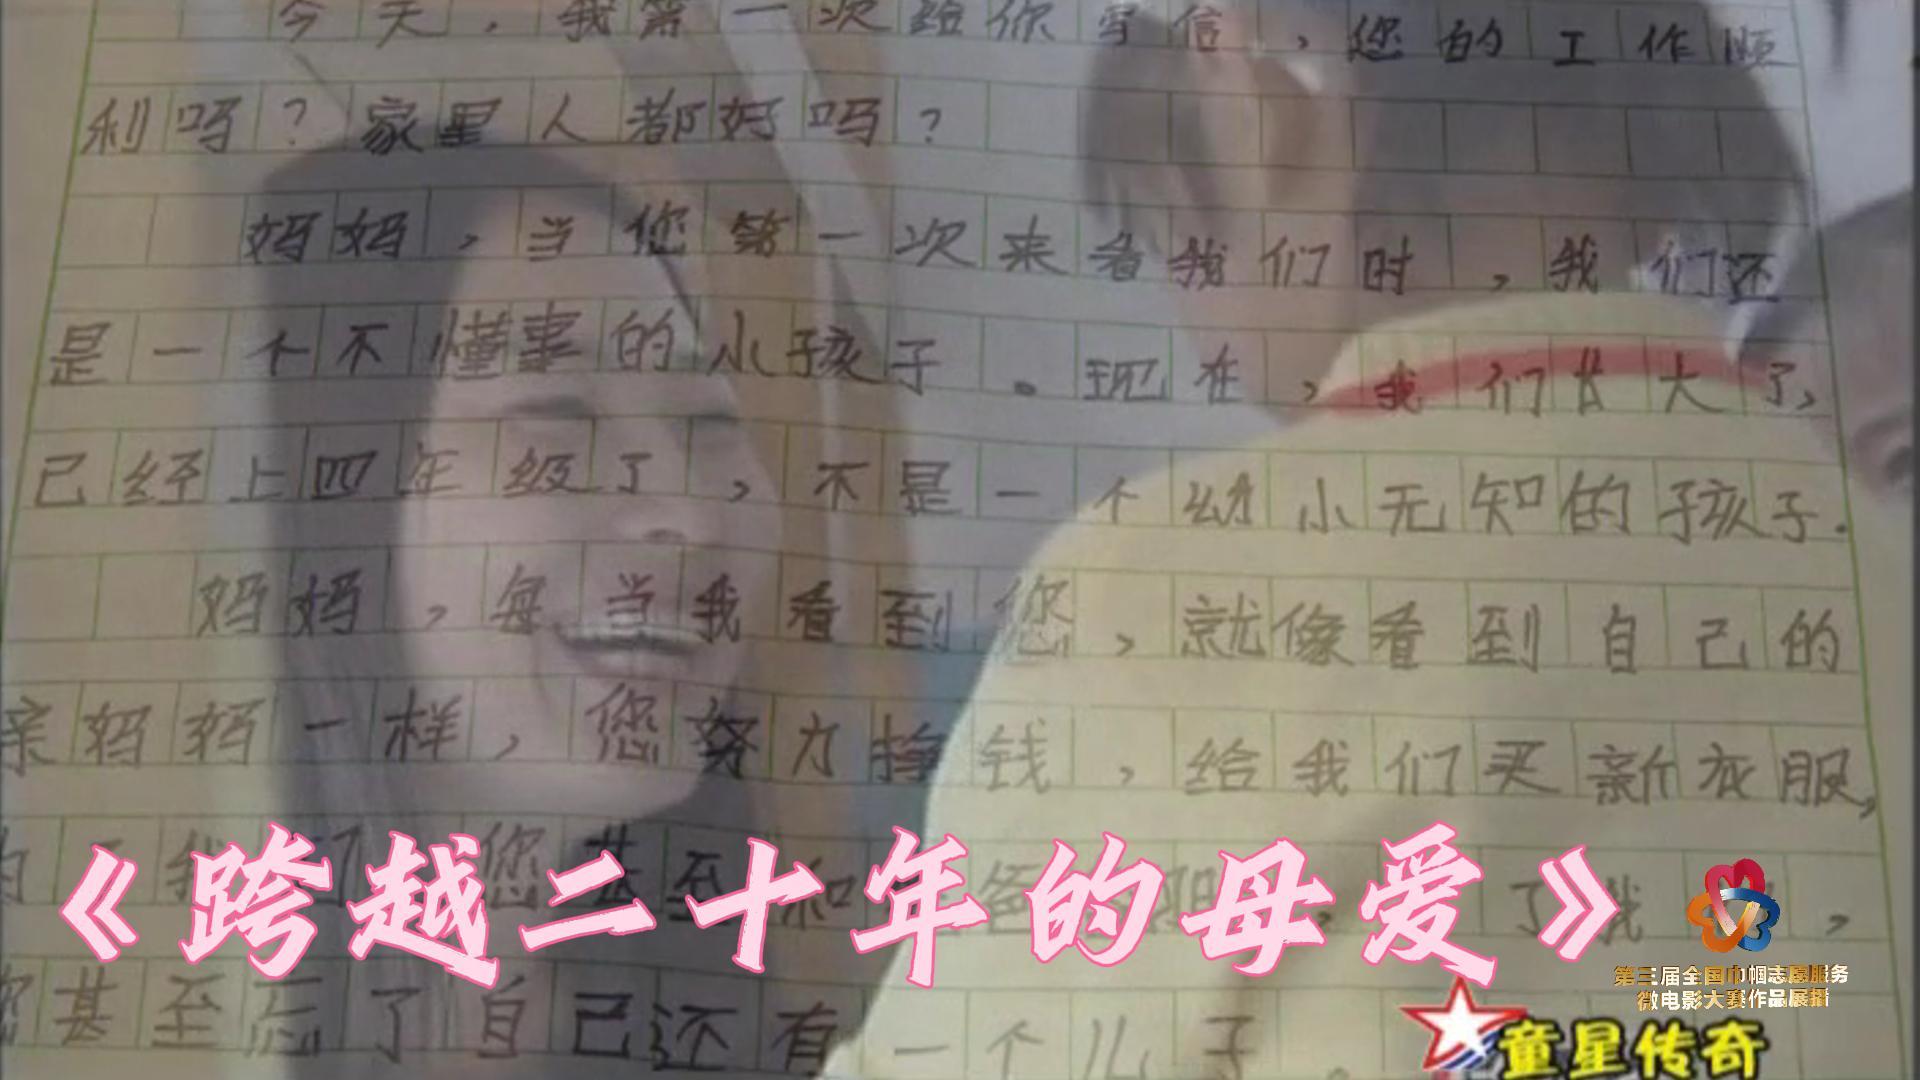 今天，我第一次给你写信，您的工作顺
利吗？家里人都好吗？
妈妈，当您第一次来看我们时，我们还
是一个不懂事的小孩子。现在，我们长大了，
已经上四年级了，不是一个幼小无知的孩子.
妈妈，每当我看到您，就像看到自己的
亲妈妈一样，您努力挣钱，给我们买新衣服，
您甚至和
了我
您甚至忘了自己还有一个儿子。
《跨越二十年的母爱》
第三届全国巾帼志愿服务
微电影大赛作品展播
童星传奇